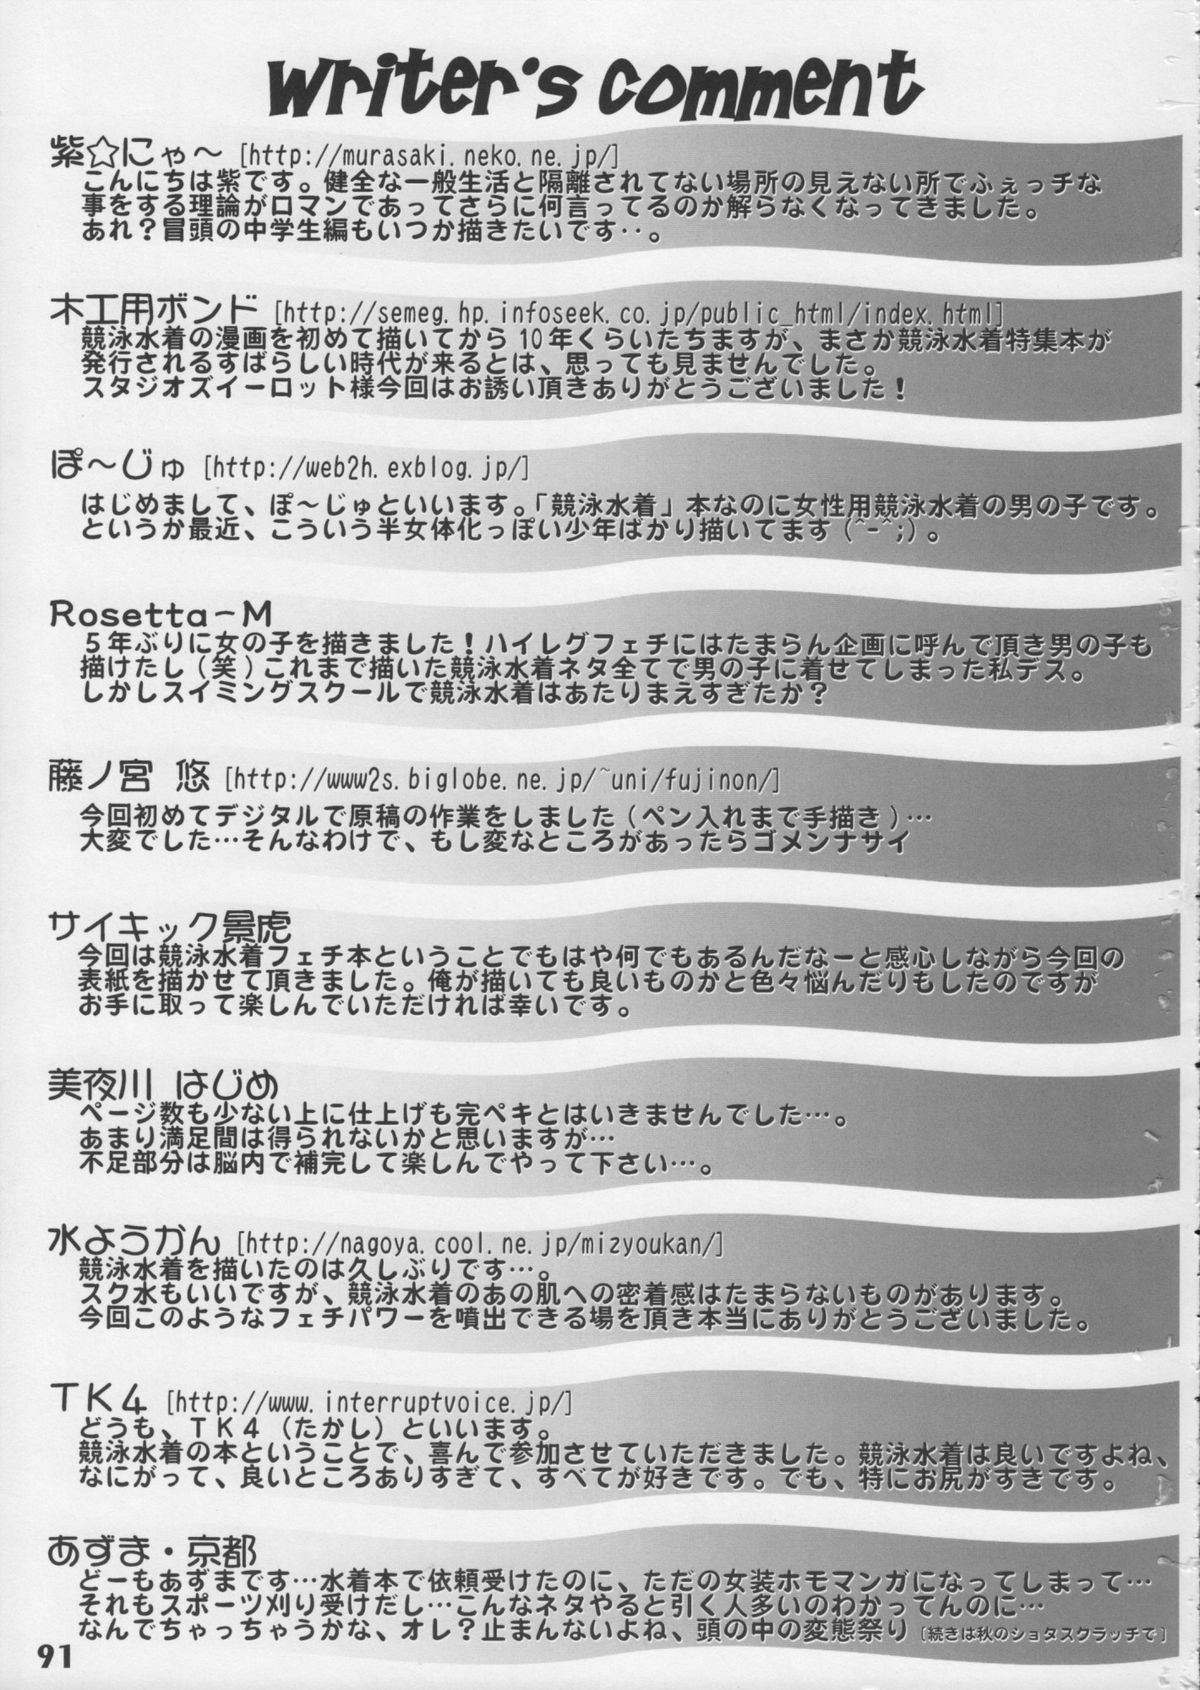 writer's comment
紫☆にゃ～ [http://murasaki.neko.ne.jp/]
こんにちは紫です。健全な一般生活と隔離されてない場所の見えない所でふぇっチな
事をする理論がロマンであってさらに何言ってるのか解らなくなってきました。
あれ？冒頭の中学生編もいつか描きたいです‥。
木工用ボンド [http://semeg.hp.infoseek.co.jp/public_html/index.html]
競泳水着の漫画を初めて描いてから10年くらいたちますが、まさか競泳水着特集本が
発行されるすばらしい時代が来るとは、思っても見ませんでした。
スタジオズイーロット様今回はお誘い頂きありがとうございました！
ぽ～じゅ [http://web2h.exblog.jp/]
はじめまして、ぽ～じゅといいます。「競泳水着」本なのに女性用競泳水着の男の子です。
というか最近、こういう半女体化っぽい少年ばかり描いてます(^-^;)。
Rosetta－M
５年ぶりに女の子を描きました！ハイレグフェチにはたまらん企画に呼んで頂き男の子も
描けたし（笑）これまで描いた競泳水着ネタ全てで男の子に着せてしまった私デス。
しかしスイミングスクールで競泳水着はあたりまえすぎたか？
藤ノ宮 悠 [http://www2s.biglobe.ne.jp/~uni/fujinon/]
今回初めてデジタルで原稿の作業をしました（ペン入れまで手描き）…
大変でした…そんなわけで、もし変なところがあったらゴメンナサイ
サイキック景虎
今回は競泳水着フェチ本ということでもはや何でもあるんだなーと感心しながら今回の
表紙を描かせて頂きました。俺が描いても良いものかと色々悩んだりもしたのですが
お手に取って楽しんでいただければ幸いです。
美夜川 はじめ
ページ数も少ない上に仕上げも完ペキとはいきませんでした…。
あまり満足間は得られないかと思いますが…
不足部分は脳内で補完して楽しんでやって下さい…。
水ようかん [http://nagoya.cool.ne.jp/mizyoukan/]
競泳水着を描いたのは久しぶりです…。
スク水もいいですが、競泳水着のあの肌への密着感はたまらないものがあります。
今回このようなフェチパワーを噴出できる場を頂き本当にありがとうございました。
TK4 [http://www.interruptvoice.jp/]
どうも、TK4（たかし）といいます。
競泳水着の本ということで、喜んで参加させていただきました。競泳水着は良いですよね、
なにがって、良いところありすぎて、すべてが好きです。でも、特にお尻がすきです。
あずま・京都
どーもあずまです…水着本で依頼受けたのに、ただの女装ホモマンガになってしまって…
それもスポーツ刈り受けだし…こんなネタやると引く人多いのわかってんのに…
なんでちゃっちゃうかな、オレ？止まんないよね、頭の中の変態祭り［続きは秋のショタスクラッチで］
91